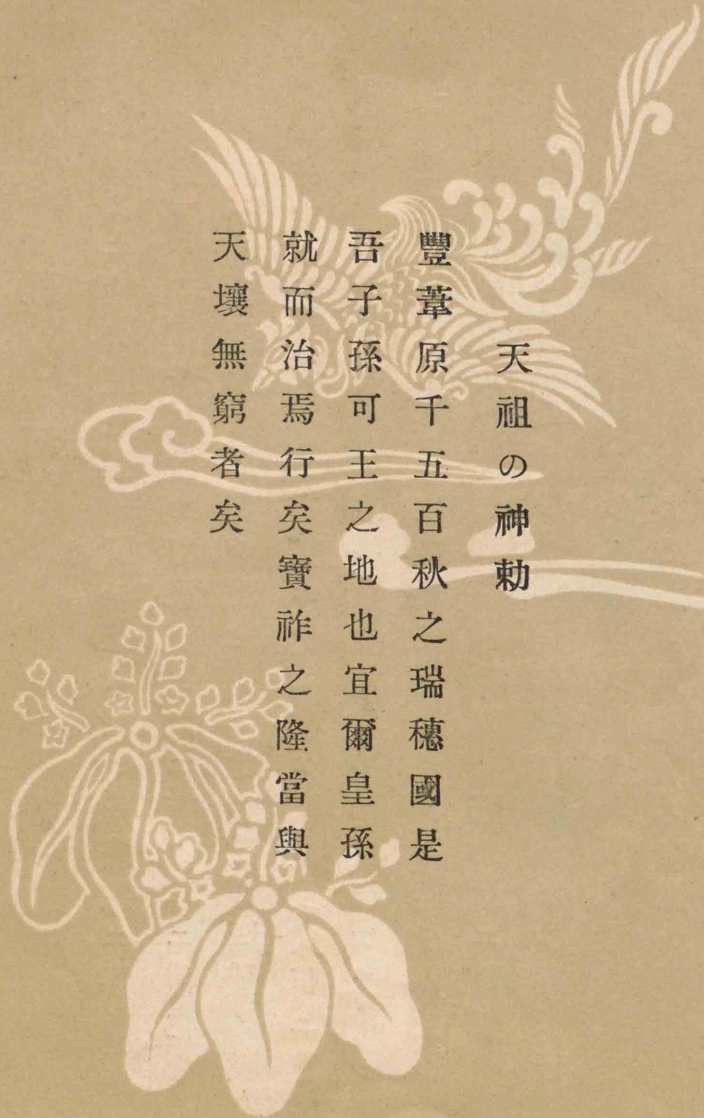 天祖の神勅
豐葦原千五百秋之瑞穗國是
吾子孫可王之地也宜爾皇孫
就而治焉行矣寶祚之隆當與
天壤無窮者矣